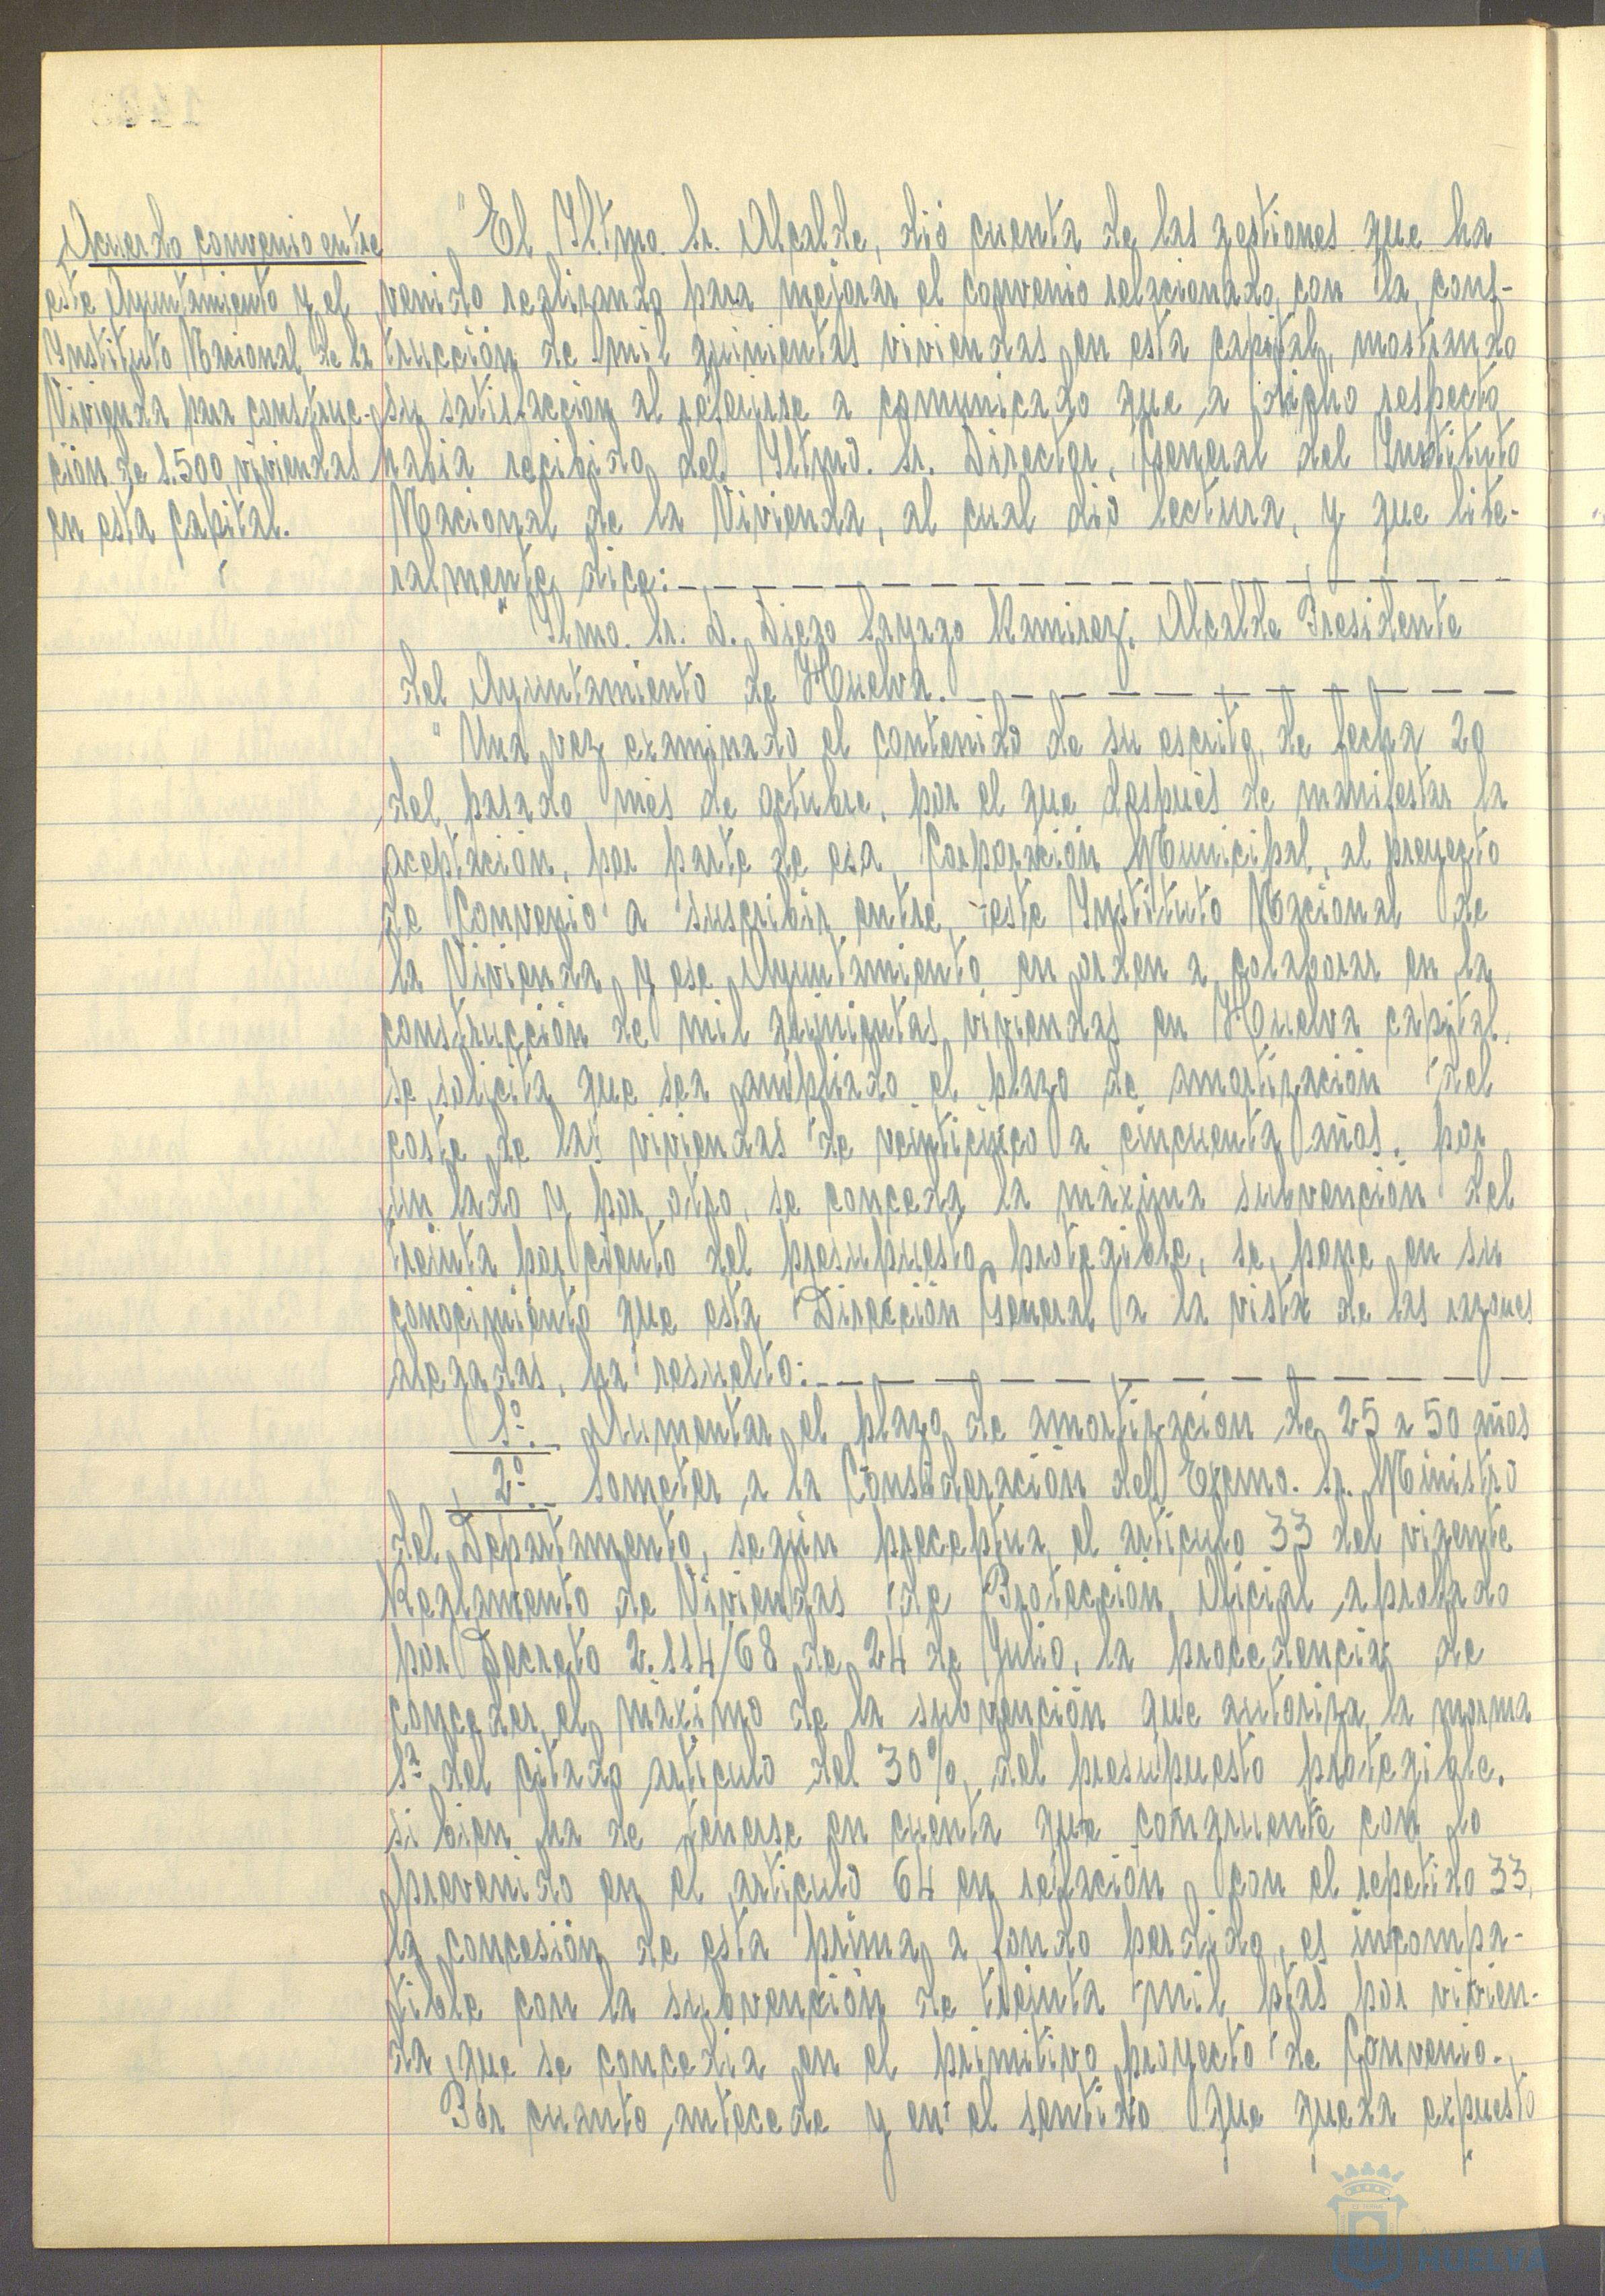 Acuerdo convenio entre
este Ayuntamiento y el
Instituto Nacional de la
Vivienda para construc-
ción de 1.500 viviendas
en esta capital.
"El Iltmo. Sr. Alcalde, dió cuenta de las gestiones que ha
venido realizando para mejorar el convenio relacionado con la cons-
trucción de mil quinientas viviendas en esta capital, mostrando
su satisfacción al referirse a comunicado que a dicho respecto
habia recibido del Iltmo. Sr. Director General del Instituto
Nacional de la Vivienda, al cual dió lectura, y que lite-
ralmente dice:
"Ilmo. Sr. D. Diego Sayago Ramirez, Alcalde Presidente
del Ayuntamiento de Huelva.
"Una vez examinado el contenido de su escrito, de fecha 29
del pasado mes de octubre, por el que después de manifestar la
aceptación, por parte de esa Corporación Municipal, al proyecto
de Convenio a suscribir entre este Instituto Nacional de
la Vivienda y ese Ayuntamiento en orden a colaborar en la
construcción de mil quinientas viviendas en Huelva capital,
se solicita que sea ampliado el plazo de amortización del
coste de las viviendas de veinticinco a cincuenta años, por
un lado y por otro, se conceda la máxima subvención del
treinta por ciento del presupuesto protegible, se pone en su
conocimiento que esta Dirección General a la vista de las razones
alegadas, ha resuelto:
1º. Aumentar el plazo de amortización de 25 a 50 años
2º. Someter a la Consideración del Excmo. Sr. Ministro
del Departamento, según preceptua el articulo 33 del vigente
Reglamento de Viviendas de Protección Oficial aprobado
por Decreto 2.114/68 de 24 de Julio, la procedencia de
conceder el máximo de la subvención que autoriza la norma
1ª del citado articulo del 30%, del presupuesto protegible.
si bien ha de tenerse en cuenta que congruente con lo
prevenido en el articulo 64 en relación con el repetido 33,
la concesión de esta prima a fondo perdido, es incompa-
tible con la subvención de treinta mil ptas por vivien-
da que se concedia en el primitivo proyecto de Convenio.
Por cuanto antecede y en el sentido que queda expuesto
HUELVA